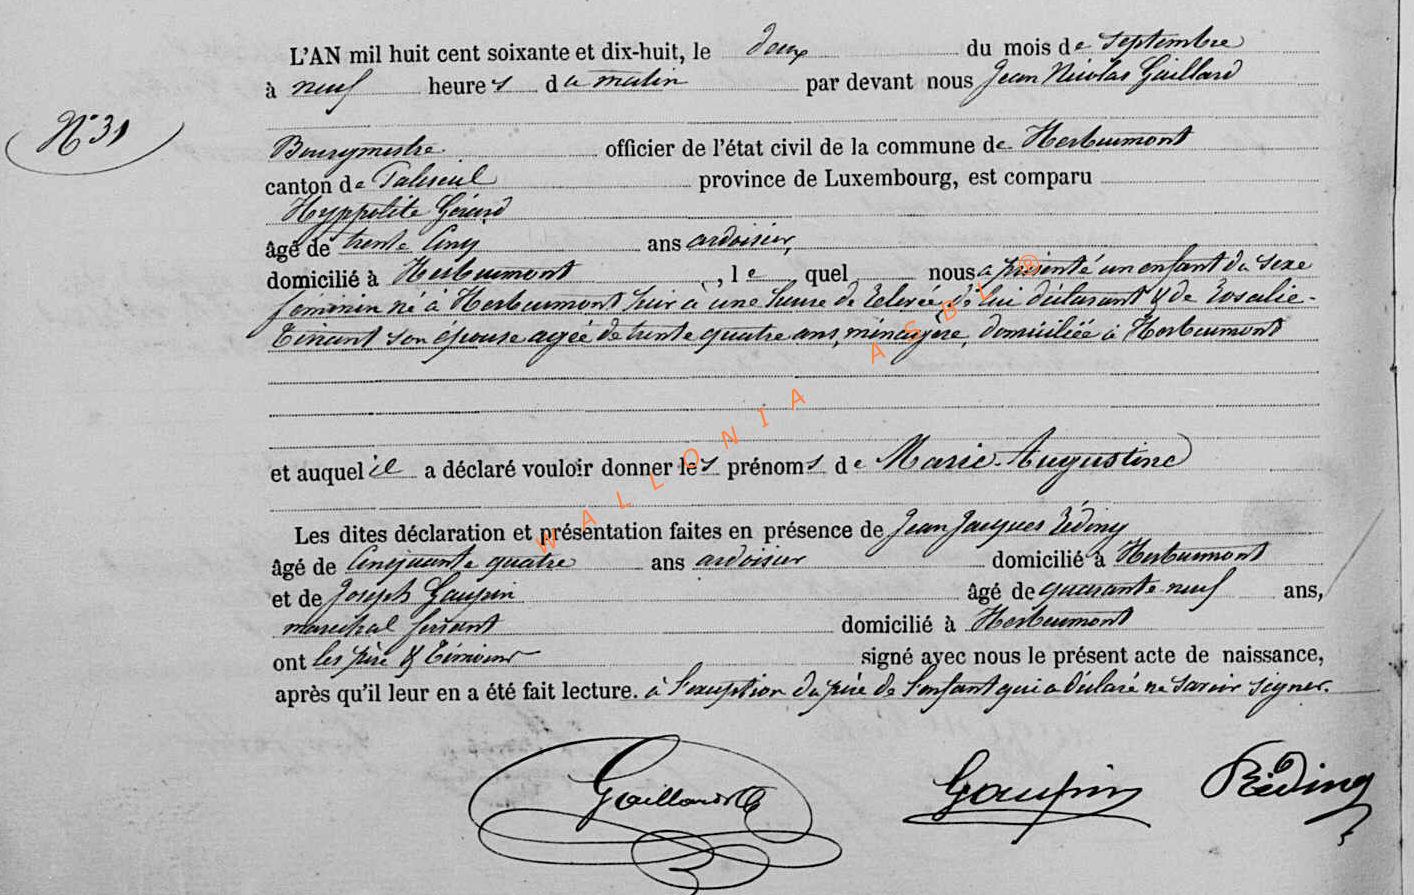 L'AN mil huit cent soixante et dix-huit, le deux du mois de Septembre
à neuf heures du matin par devant nous Jean Nicolas Gaillard
N° 31
Bourgmestre officier de l'état civil de la commune de Herbeumont
canton de Paliseul province de Luxembourg, est comparu
Hyppolite Gérard
âgé de trente cinq ans ardoisier,
domicilié à Herbeumont, le quel nous a présenté un enfant du sexe
féminin né à Herbeumont hier à une heure de relevée, de lui déclarant & de Rosalie
Tinant son épouse agée de trente quatre ans, ménagère, domiciliée à Herbeumont
et auquel il a déclaré vouloir donner les prénoms de Marie-Augustine
Les dites déclaration et présentation faites en présence de Jean Jacques Réding
âgé de Cinquante quatre ans ardoisier domicilié à Herbeumont
et de Joseph Goupin âgé de quarante-neuf ans,
marechal ferrant domicilié à Herbeumont
ont les père & témoins signé avec nous le présent acte de naissance,
après qu'il leur en a été fait lecture. à l'exception du père de l'enfant qui a déclaré ne savoir signer.
Gaillard Goupin Réding
WALLONIA ASBL ®